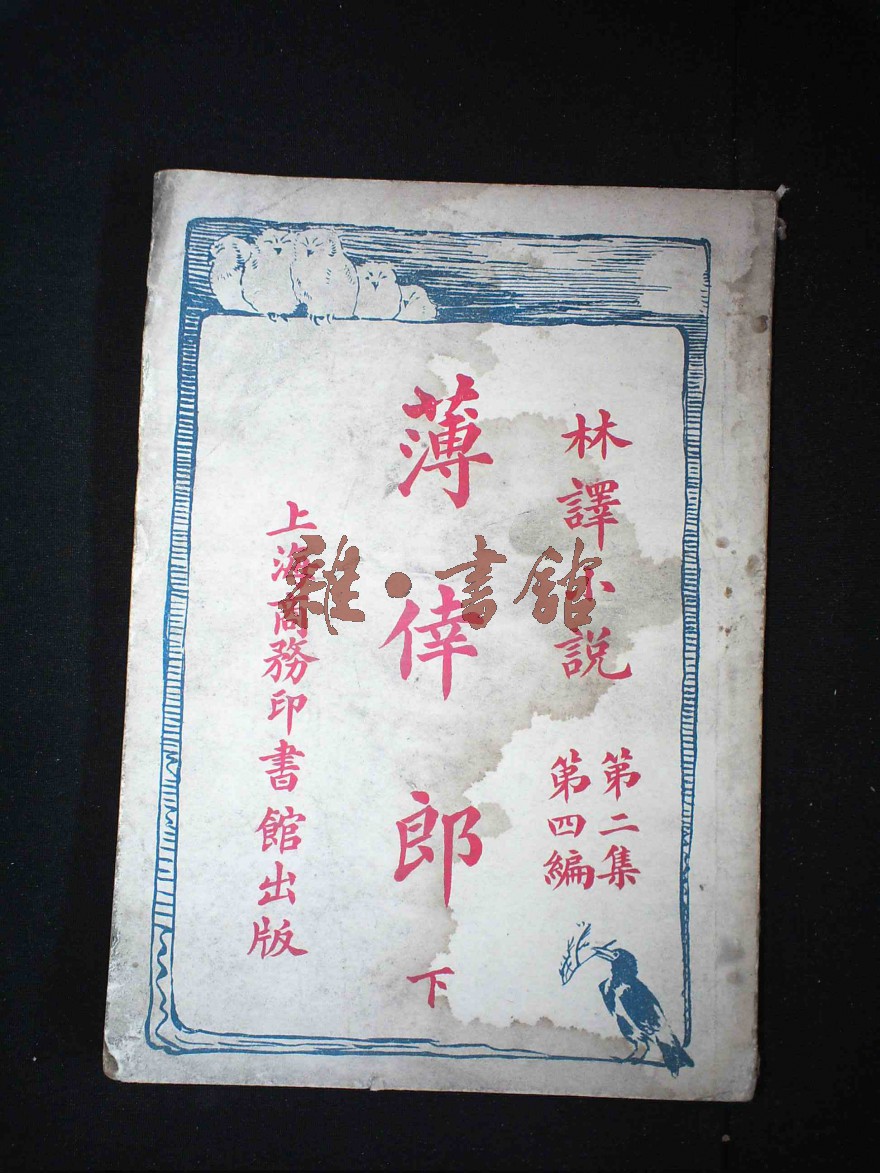 林譯小說
第二集
第四編
薄倖郎
下
上海商務印書館出版
雜·書館